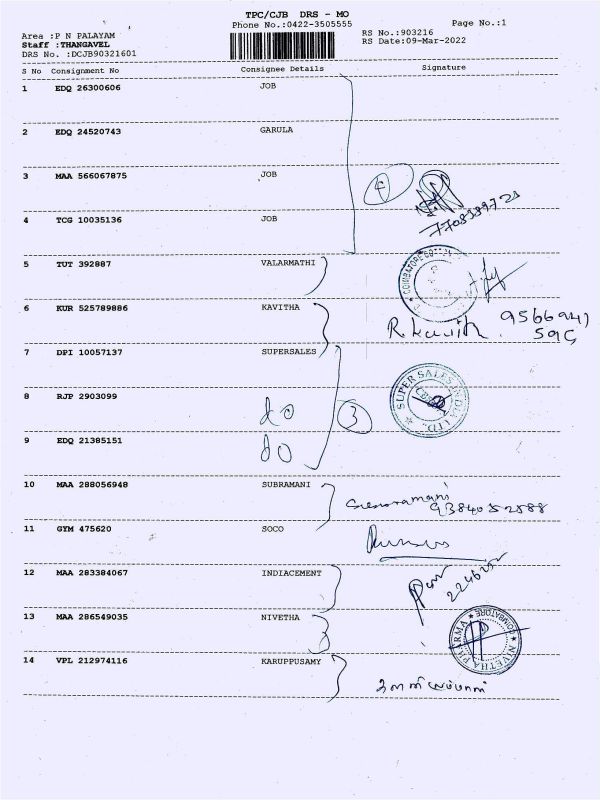 TPC/CJB DRS - MO
Phone No.:0422-3505555
Page No.:1
Area :P N PALAYAM
Staff :THANGAVEL
DRS No. :DCJB90321601
RS No.:903216
RS Date:09-Mar-2022
S No Consignment No Consignee Details Signature
1 EDQ 26300606 JOB
2 EDQ 24520743 GARULA
3 MAA 566067875 JOB
4
4 TCG 10035136 JOB
5 TUT 392887 VALARMATHI
6 KUR 525789886 KAVITHA
7 DPI 10057137 SUPERSALES
SUPER SALES INDIA LTD.
8 RJP 2903099 do
3
9 EDQ 21385151 do
10 MAA 288056948 SUBRAMANI
11 GYM 475620 SOCO
12 MAA 283384067 INDIACEMENT
13 MAA 286549035 NIVETHA
NIVETHA PHARMA COIMBATORE
14 VPL 212974116 KARUPPUSAMY